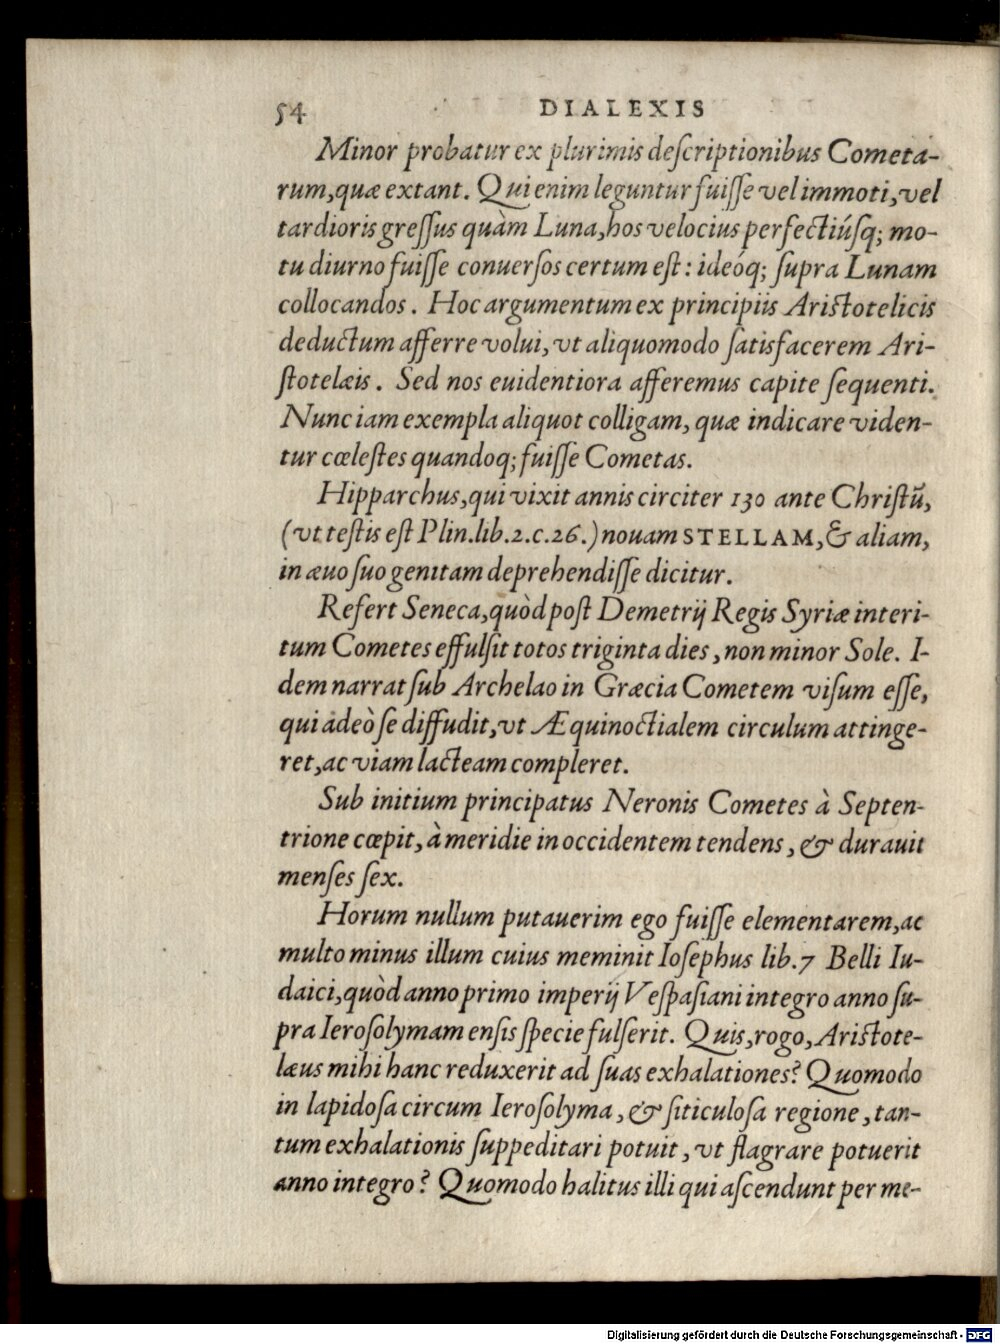 54 DIALEXIS
Minor probatur ex plurimis deſcriptionibus Cometa-
rum, quæ extant. Qui enim leguntur fuiſſe vel immoti, vel
tardioris greſſus quàm Luna, hos velocius perfectiúſq; mo-
tu diurno fuiſſe conuerſos certum eſt: ideóq; ſupra Lunam
collocandos. Hoc argumentum ex principiis Ariſtotelicis
deductum afferre volui, vt aliquomodo ſatisfacerem Ari-
ſtotelæis. Sed nos euidentiora afferemus capite ſequenti.
Nunc iam exempla aliquot colligam, quæ indicare viden-
tur cœleſtes quandoq; fuiſſe Cometas.
Hipparchus, qui vixit annis circiter 130 ante Chriſtū,
(vt teſtis eſt Plin. lib. 2. c. 26.) nouam STELLAM, & aliam,
in æuo ſuo genitam deprehendiſſe dicitur.
Refert Seneca, quòd poſt Demetrij Regis Syriæ interi-
tum Cometes effulſit totos triginta dies, non minor Sole. I-
dem narrat ſub Archelao in Græcia Cometem viſum eſſe,
qui adeò ſe diffudit, vt Æquinoctialem circulum attinge-
ret, ac viam lacteam compleret.
Sub initium principatus Neronis Cometes à Septen-
trione cœpit, à meridie in occidentem tendens, & durauit
menſes ſex.
Horum nullum putauerim ego fuiſſe elementarem, ac
multo minus illum cuius meminit Ioſephus lib. 7 Belli Iu-
daici, quòd anno primo imperij Veſpaſiani integro anno ſu-
pra Ieroſolymam enſis ſpecie fulſerit. Quis, rogo, Ariſtote-
læus mihi hanc reduxerit ad ſuas exhalationes? Quomodo
in lapidoſa circum Ieroſolyma, & ſiticuloſa regione, tan-
tum exhalationis ſuppeditari potuit, vt flagrare potuerit
anno integro? Quomodo halitus illi qui aſcendunt per me-
Digitalisierung gefördert durch die Deutsche Forschungsgemeinschaft - DFG